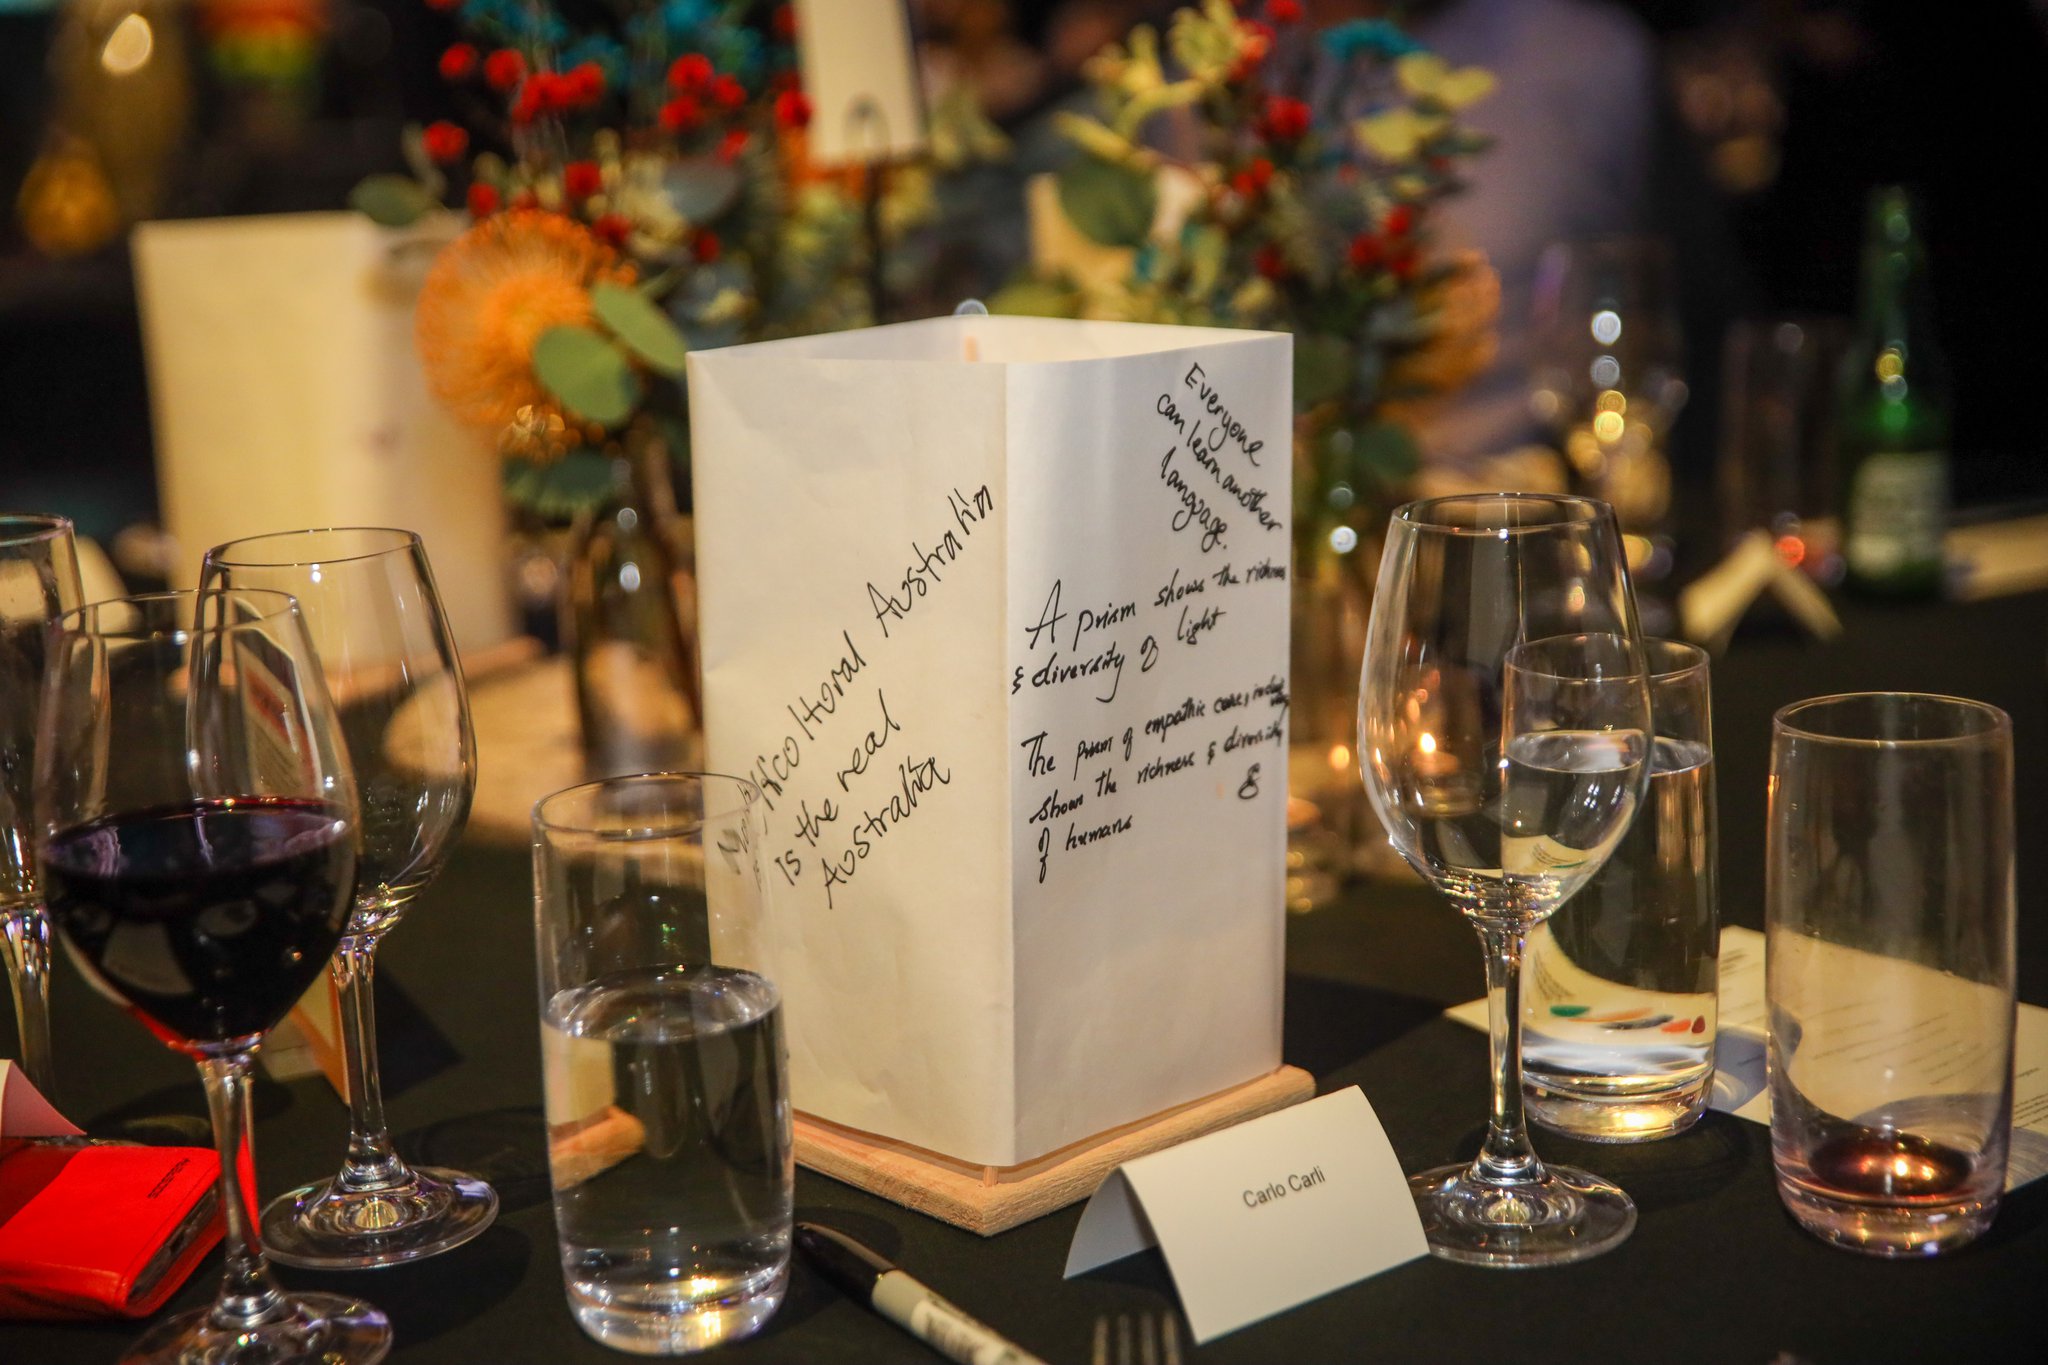 Multicultural Australia
is the real
Australia
Everyone
can learn another
language.
A prism shows the richness
& diversity of light
The prism of empathic care, inclusi
shows the richness & diversity
of humans
Carlo Carli